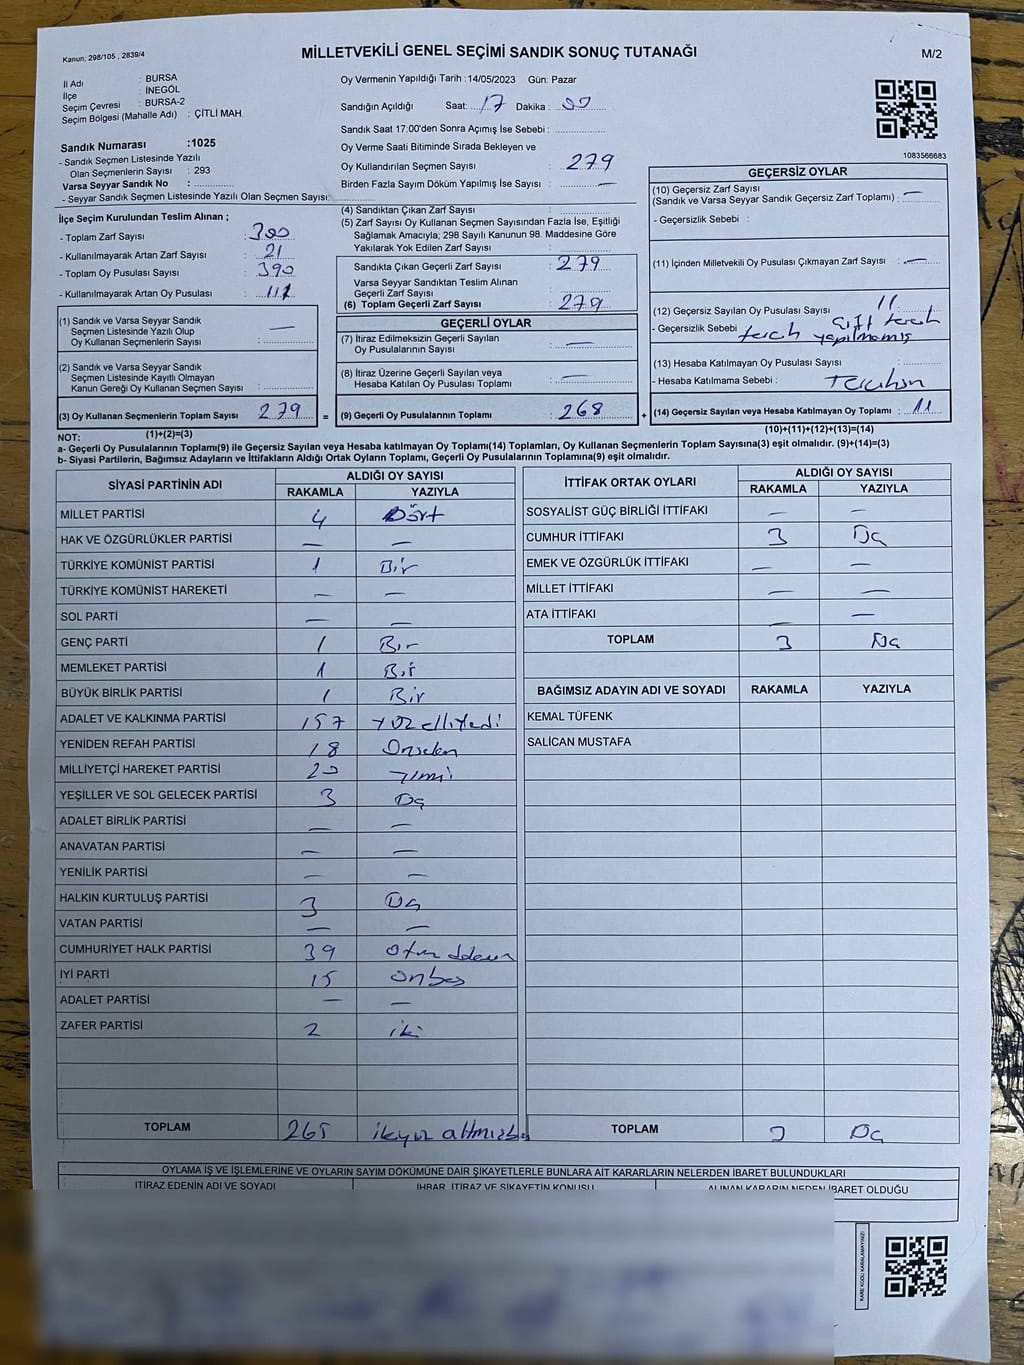 Kanun; 298/105 , 2839/4
MİLLETVEKİLİ GENEL SEÇİMİ SANDIK SONUÇ TUTANAĞI
M/2
İl Adı : BURSA
İlçe : İNEGÖL
Seçim Çevresi : BURSA-2
Seçim Bölgesi (Mahalle Adı) : ÇİTLİ MAH.
Sandık Numarası :1025
- Sandık Seçmen Listesinde Yazılı
Olan Seçmenlerin Sayısı : 293
Varsa Seyyar Sandık No :
- Seyyar Sandık Seçmen Listesinde Yazılı Olan Seçmen Sayısı:
Oy Vermenin Yapıldığı Tarih :14/05/2023 Gün: Pazar
Sandığın Açıldığı Saat: 17 Dakika : 00
Sandık Saat 17:00'den Sonra Açımış İse Sebebi :
Oy Verme Saati Bitiminde Sırada Bekleyen ve
Oy Kullandırılan Seçmen Sayısı : 279
Birden Fazla Sayım Döküm Yapılmış İse Sayısı : —
1083566683
İlçe Seçim Kurulundan Teslim Alınan ;
- Toplam Zarf Sayısı : 300
- Kullanılmayarak Artan Zarf Sayısı : 21
- Toplam Oy Pusulası Sayısı : 390
- Kullanılmayarak Artan Oy Pusulası : 111
(1) Sandık ve Varsa Seyyar Sandık
Seçmen Listesinde Yazılı Olup
Oy Kullanan Seçmenlerin Sayısı : —
(2) Sandık ve Varsa Seyyar Sandık
Seçmen Listesinde Kayıtlı Olmayan
Kanun Gereği Oy Kullanan Seçmen Sayısı :
(3) Oy Kullanan Seçmenlerin Toplam Sayısı : 279
(1)+(2)=(3)
(4) Sandıktan Çıkan Zarf Sayısı :
(5) Zarf Sayısı Oy Kullanan Seçmen Sayısından Fazla İse, Eşitliği
Sağlamak Amacıyla, 298 Sayılı Kanunun 98. Maddesine Göre
Yakılarak Yok Edilen Zarf Sayısı :
Sandıkta Çıkan Geçerli Zarf Sayısı : 279
Varsa Seyyar Sandıktan Teslim Alınan
Geçerli Zarf Sayısı :
(6) Toplam Geçerli Zarf Sayısı : 279
GEÇERLİ OYLAR
(7) İtiraz Edilmeksizin Geçerli Sayılan
Oy Pusulalarının Sayısı : —
(8) İtiraz Üzerine Geçerli Sayılan veya
Hesaba Katılan Oy Pusulası Toplamı : —
= (9) Geçerli Oy Pusulalarının Toplamı : 268
GEÇERSİZ OYLAR
(10) Geçersiz Zarf Sayısı
(Sandık ve Varsa Seyyar Sandık Geçersiz Zarf Toplamı) : —
- Geçersizlik Sebebi :
(11) İçinden Milletvekili Oy Pusulası Çıkmayan Zarf Sayısı : —
(12) Geçersiz Sayılan Oy Pusulası Sayısı : 11
- Geçersizlik Sebebi : çift tercih
tercih yapılmamış
(13) Hesaba Katılmayan Oy Pusulası Sayısı :
- Hesaba Katılmama Sebebi :
+ (14) Geçersiz Sayılan veya Hesaba Katılmayan Oy Toplamı : 11
(10)+(11)+(12)+(13)=(14)
NOT:
a- Geçerli Oy Pusulalarının Toplamı(9) ile Geçersiz Sayılan veya Hesaba katılmayan Oy Toplamı(14) Toplamları, Oy Kullanan Seçmenlerin Toplam Sayısına(3) eşit olmalıdır. (9)+(14)=(3)
b- Siyasi Partilerin, Bağımsız Adayların ve İttifakların Aldığı Ortak Oyların Toplamı, Geçerli Oy Pusulalarının Toplamına(9) eşit olmalıdır.
SİYASİ PARTİNİN ADI ALDIĞI OY SAYISI
RAKAMLA YAZIYLA
MİLLET PARTİSİ 4 Dört
HAK VE ÖZGÜRLÜKLER PARTİSİ — —
TÜRKİYE KOMÜNİST PARTİSİ 1 Bir
TÜRKİYE KOMÜNİST HAREKETİ — —
SOL PARTİ — —
GENÇ PARTİ 1 Bir
MEMLEKET PARTİSİ 1 Bir
BÜYÜK BİRLİK PARTİSİ 1 Bir
ADALET VE KALKINMA PARTİSİ 157 yüz elliyedi
YENİDEN REFAH PARTİSİ 18 Onsekiz
MİLLİYETÇİ HAREKET PARTİSİ 20 yirmi
YEŞİLLER VE SOL GELECEK PARTİSİ 3 Üç
ADALET BİRLİK PARTİSİ — —
ANAVATAN PARTİSİ — —
YENİLİK PARTİSİ — —
HALKIN KURTULUŞ PARTİSİ 3 Üç
VATAN PARTİSİ — —
CUMHURİYET HALK PARTİSİ 39 Otuz dokuz
İYİ PARTİ 15 onbeş
ADALET PARTİSİ — —
ZAFER PARTİSİ 2 iki
TOPLAM 265 ikiyüz altmışbeş
İTTİFAK ORTAK OYLARI ALDIĞI OY SAYISI
RAKAMLA YAZIYLA
SOSYALİST GÜÇ BİRLİĞİ İTTİFAKI — —
CUMHUR İTTİFAKI 3 Üç
EMEK VE ÖZGÜRLÜK İTTİFAKI — —
MİLLET İTTİFAKI — —
ATA İTTİFAKI — —
TOPLAM 3 Üç
BAĞIMSIZ ADAYIN ADI VE SOYADI RAKAMLA YAZIYLA
KEMAL TÜFENK
SALİCAN MUSTAFA
TOPLAM 3 Üç
OYLAMA İŞ VE İŞLEMLERİNE VE OYLARIN SAYIM DÖKÜMÜNE DAİR ŞİKAYETLERLE BUNLARA AİT KARARLARIN NELERDEN İBARET BULUNDUKLARI
İTİRAZ EDENİN ADI VE SOYADI İHBAR, İTİRAZ VE ŞİKAYETİN KONUSU ALINAN KARARIN NEDEN İBARET OLDUĞU
KARE KODU KARALAMAYINIZ!